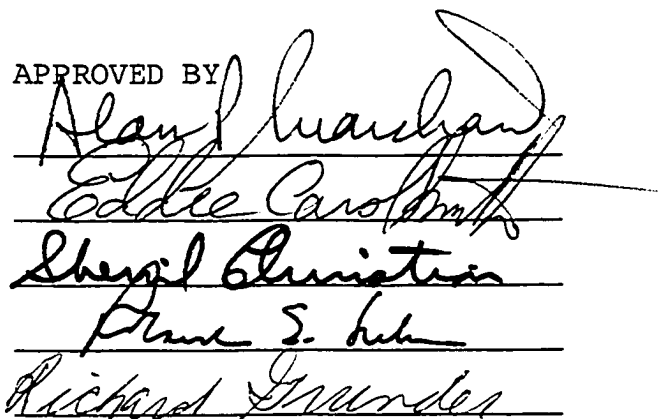 APPROVED BY
Alan P
Eddie Carol Smith
Sherril Christian
S.
Richard Grunder